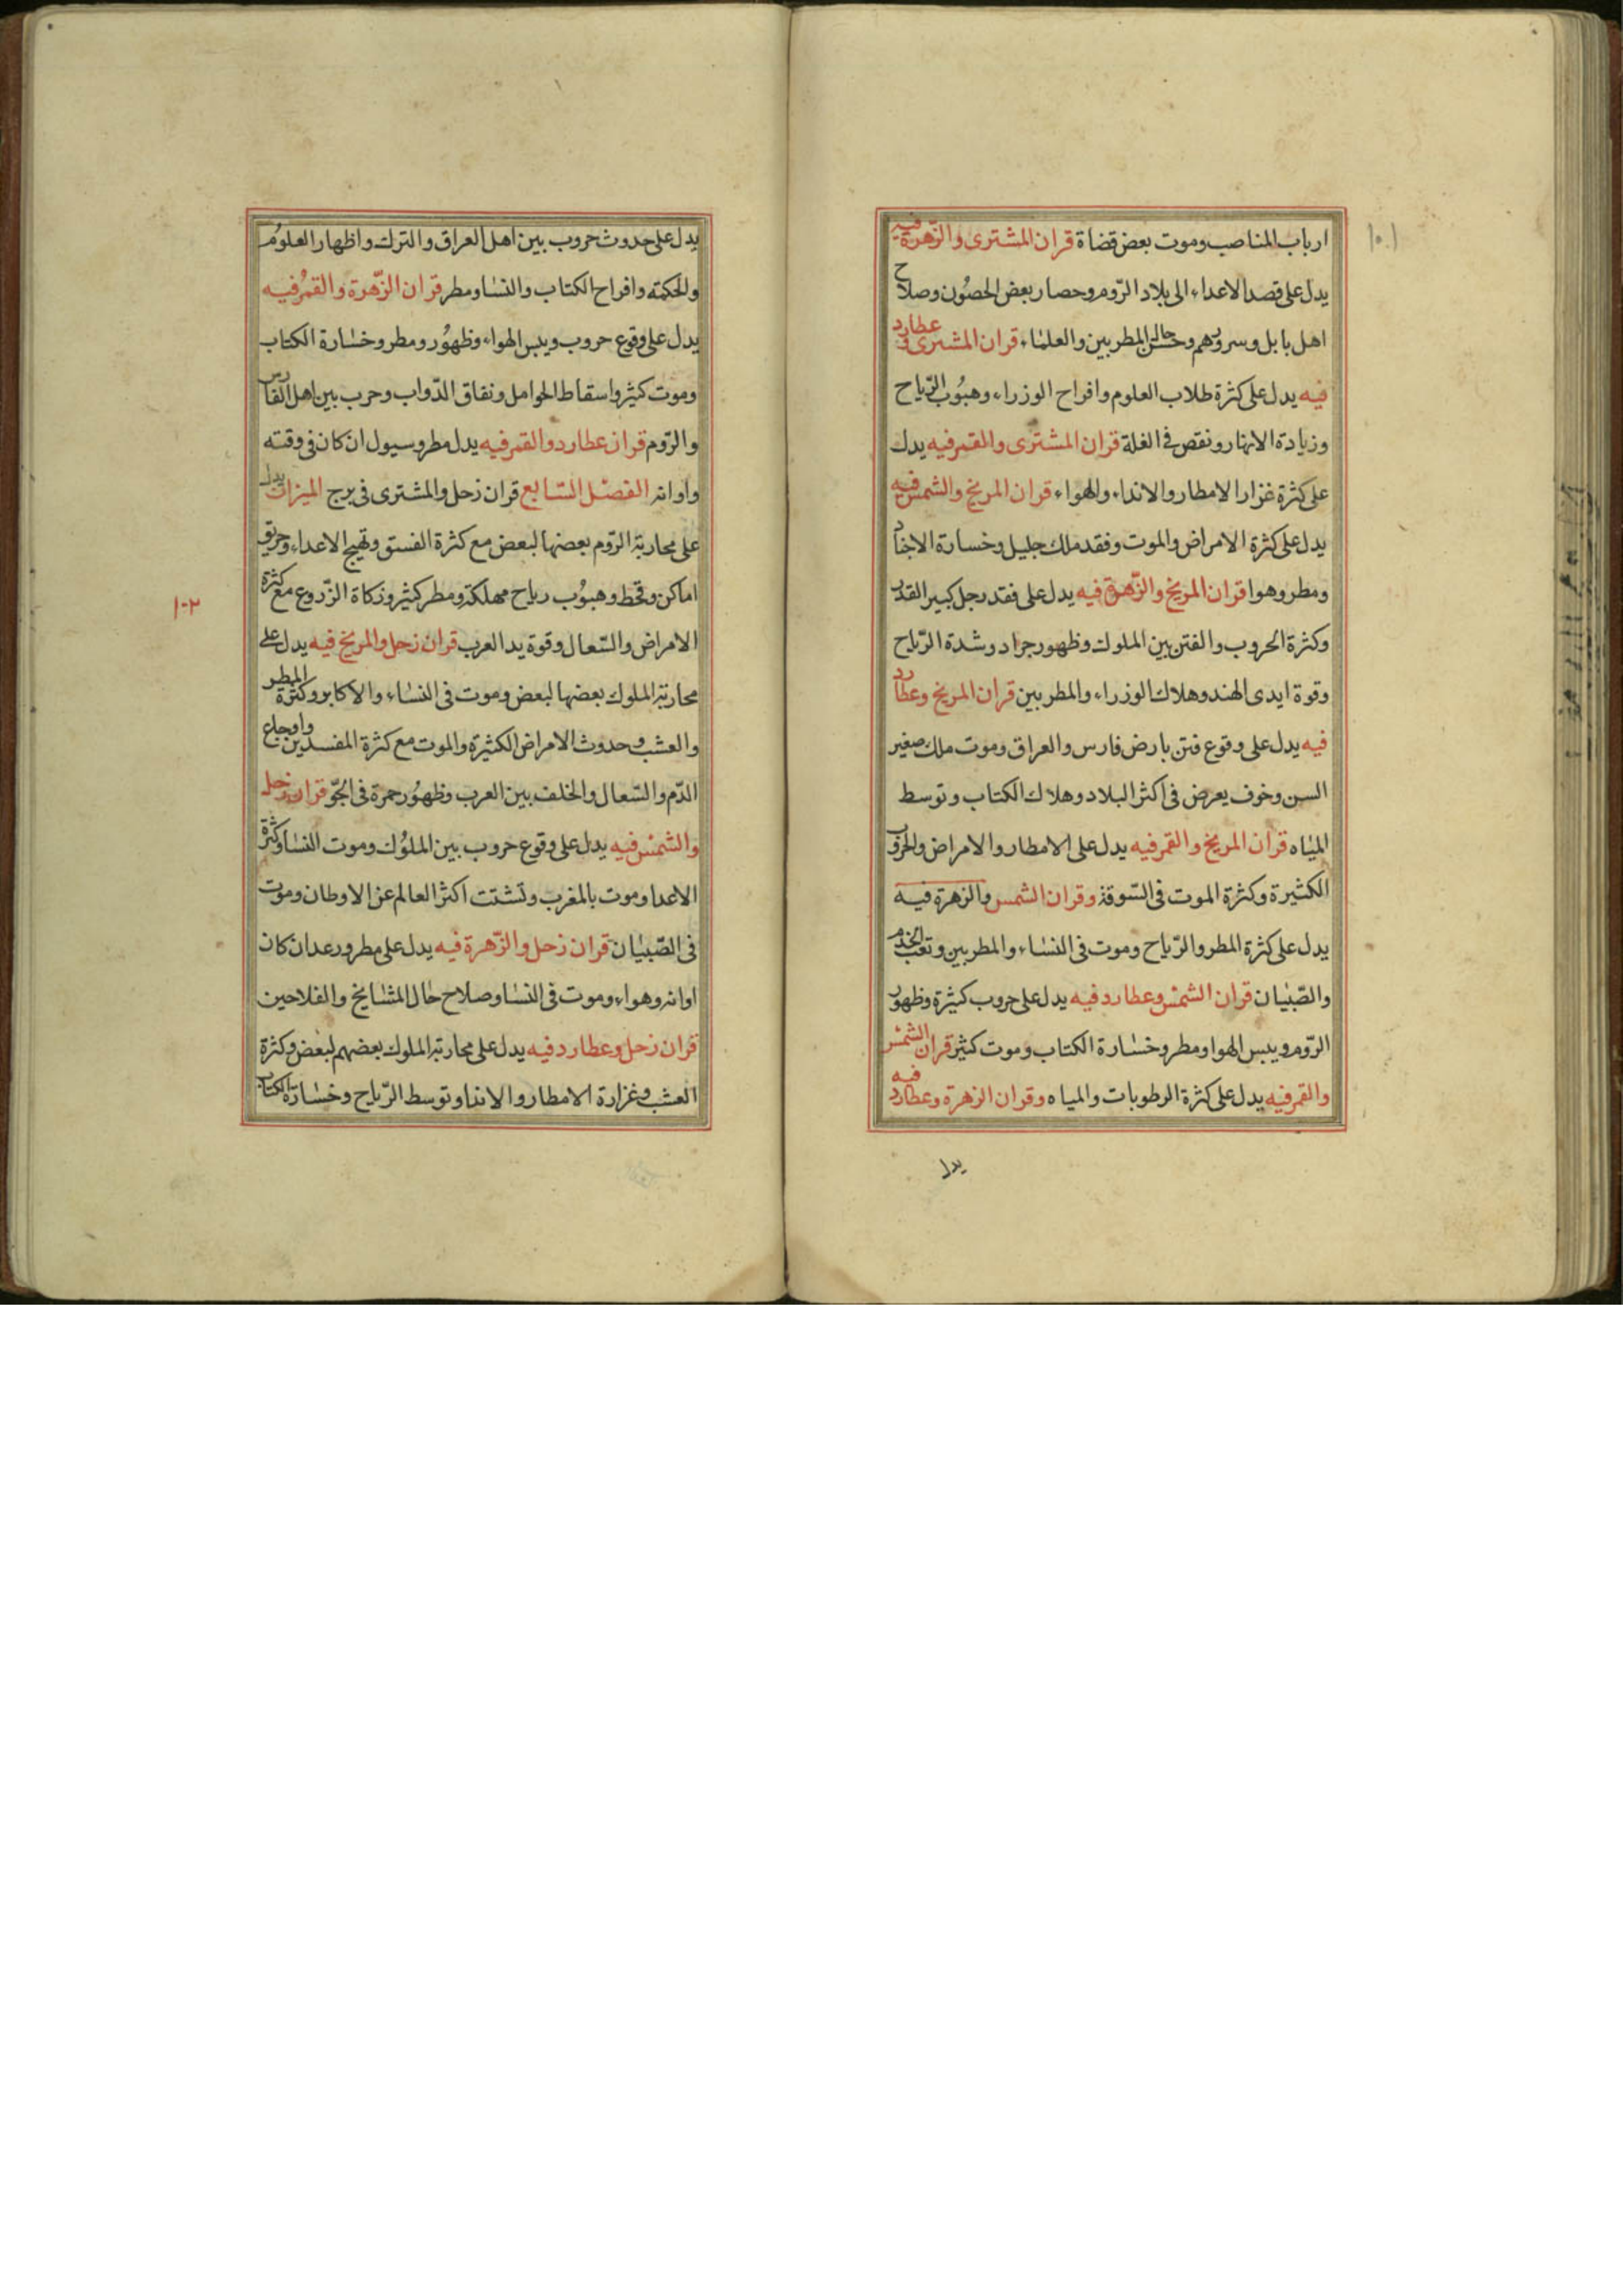 ارباب المناصب وموت بعض قضاة قران المشترى والزهرة فيه
١٠١
يدل على قصد الاعداء الى بلاد الروم وحصار بعض الحصون وصلاح
اهل بابل وسرورهم وحسن حال المطربين والعلماء قران المشترى و عطارد
فيه يدل على كثرة طلاب العلوم وافراح الوزراء وهبوب الرياح
وزيادة الانهار ونقص فى الغلة قران المشترى والقمر فيه يدل
على كثرة غزار الامطار والانداء والهواء قران المريخ والشمس فيه
يدل على كثرة الامراض والموت وفقد ملك جليل وخسارة الاجناد
ومطر وهوا قران المريخ والزهرة فيه يدل على فقد رجل كبير القدر
وكثرة الحروب والفتن بين الملوك وظهور جراد وشدة الرياح
وقوة ايدى الهند وهلاك الوزراء والمطربين قران المريخ وعطارد
فيه يدل على وقوع فتن بارض فارس والعراق وموت ملك صغير
السن وخوف يعرض فى اكثر البلاد وهلاك الكتاب وتوسط
المياه قران المريخ والقمر فيه يدل على الامطار والامراض والحروب
الكثيرة وكثرة الموت فى السوقة وقران الشمس والزهرة فيه
يدل على كثرة المطر والرياح وموت فى النساء والمطربين وتعب الخدم
والصبيان قران الشمس وعطارد فيه يدل على حروب كثيرة وظهور
الروم ويبس الهوا ومطر وخسارة الكتاب وموت كثير قران الشمس
والقمر فيه يدل على كثرة الرطوبات والمياه وقران الزهرة وعطارد فيه
يدل
يدل على حدوث حروب بين اهل العراق والترك واظهار العلوم
والحكمة وافراح الكتاب والنسا ومطر قران الزهرة والقمر فيه
يدل على وقوع حروب ويبس الهواء وظهور ومطر وخسارة الكتاب
وموت كثير واسقاط الحوامل ونفاق الدواب وحرب بين اهل الفارس
والروم قران عطارد والقمر فيه يدل مطر وسيول ان كان فى وقته
واوانه الفصل السابع قران زحل والمشترى فى برج الميزان يدل
على محاربة الروم بعضها لبعض مع كثرة الفسق وتهيج الاعداء وحريق
اماكن وقحط وهبوب رياح مهلكة ومطر كثير وزكاة الزروع مع كثرة
١٠٢
الامراض والسعال وقوة يد العرب قران زحل والمريخ فيه يدل على
محاربة الملوك بعضها لبعض وموت فى النساء والاكابر وكثرة المطر
والعشب وحدوث الامراض الكثيرة والموت مع كثرة المفسدين واوجاع
الدم والسعال والخلف بين العرب وظهور حمرة فى الجو قران زحل
والشمس فيه يدل على وقوع حروب بين الملوك وموت النسا وكثرة
الاعدا وموت بالمغرب وتشتت اكثر العالم عن الاوطان وموت
فى الصبيان قران زحل والزهرة فيه يدل على مطر ورعد ان كان
اوانه وهواء وموت فى النسا وصلاح حال المشايخ والفلاحين
قران زحل وعطارد فيه يدل على محاربة الملوك بعضهم لبعض وكثرة
العشب وغزارة الامطار والاندا وتوسط الرياح وخسارة الكتاب